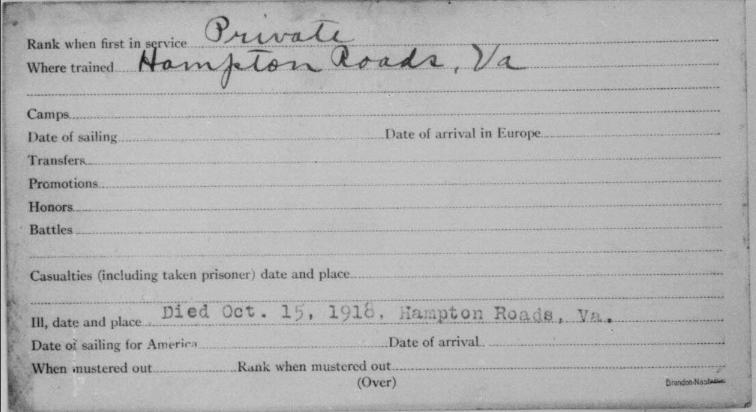 Rank when first in service Private
Where trained Hampton Roads, Va
Camps
Date of sailing Date of arrival in Europe
Transfers
Promotions
Honors
Battles
Casualties (including taken prisoner) date and place
Ill, date and place Died Oct. 15, 1918, Hampton Roads, Va.
Date of sailing for America Date of arrival
When mustered out Rank when mustered out
(Over)